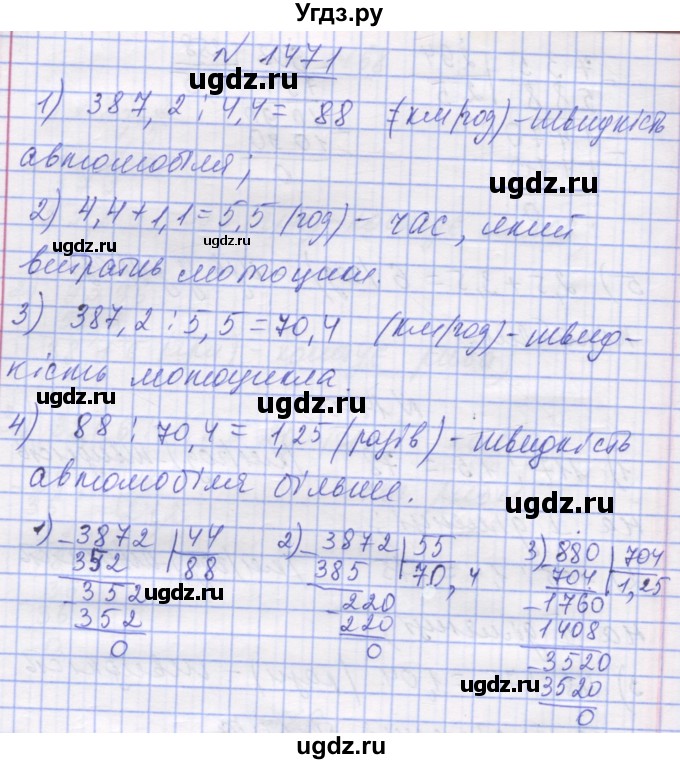 Угдз.ру
№ 1471
1) 387,2 : 4,4 = 88 (км/год) - швидкість
автомобіля;
2) 4,4 + 1,1 = 5,5 (год) - час, який
витратив мотоцикл.
3) 387,2 : 5,5 = 70,4 (км/год) - швид-
кість мотоцикла.
4) 88 : 70,4 = 1,25 (разів) - швидкість
автомобіля більше.
1) 3872 | 44
352 | 88
352
352
0
2) 3872 | 55
385 | 70,4
220
220
0
3) 880 | 704
704 | 1,25
1760
1408
3520
3520
0
ugdz.ru
ugdz.ru
ugdz.ru
ugdz.ru
ugdz.ru
ugdz.ru
ugdz.ru
ugdz.ru
ugdz.ru
ugdz.ru
ugdz.ru
ugdz.ru